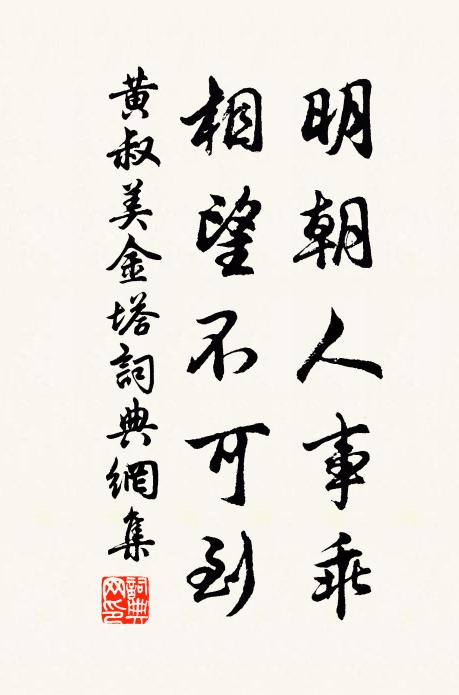 明朝人事乖
相望不可到
黄叔美金塔詞典網集
詞典網印